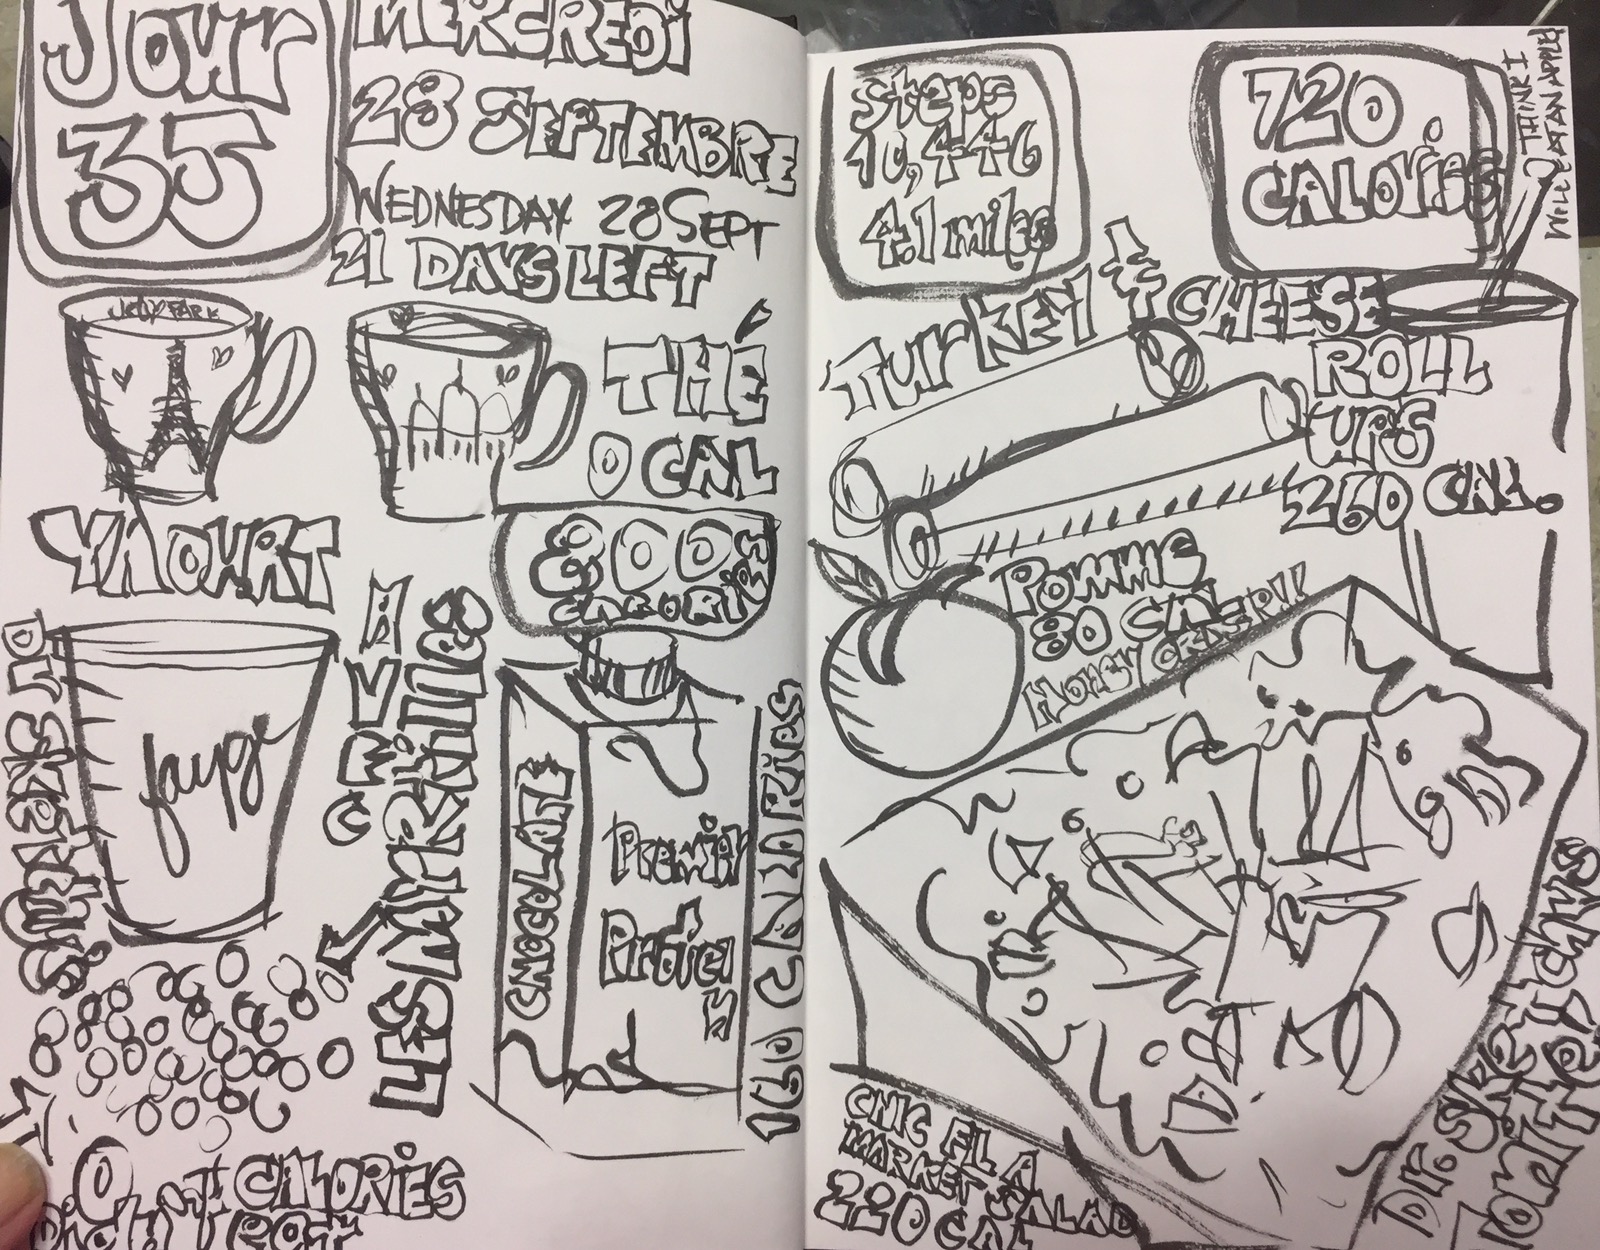 Jour
35
MERCREDi
28 SEPTEMBRE
WEDNESDAY 28 SEPT
21 DAYS LEFT
JOLLY PARK
THÉ
0 CAL
YAOURT
800
CALORIES
fauge
LES MYRTILLES
CHOCOLATE
Premier
Protein
160 CALORIES
0 CALORIES
Didn't EAT
steps
10,446
4.1 miles
720
CALORiES
THINK I
WILL EAT AN APPLE
Turkey & CHEESE
ROLL
UPS
260 CAL.
Pomme
80 CAL
HONEY CRISP!!
CHIC FIL A
MARKET SALAD
220 CAL